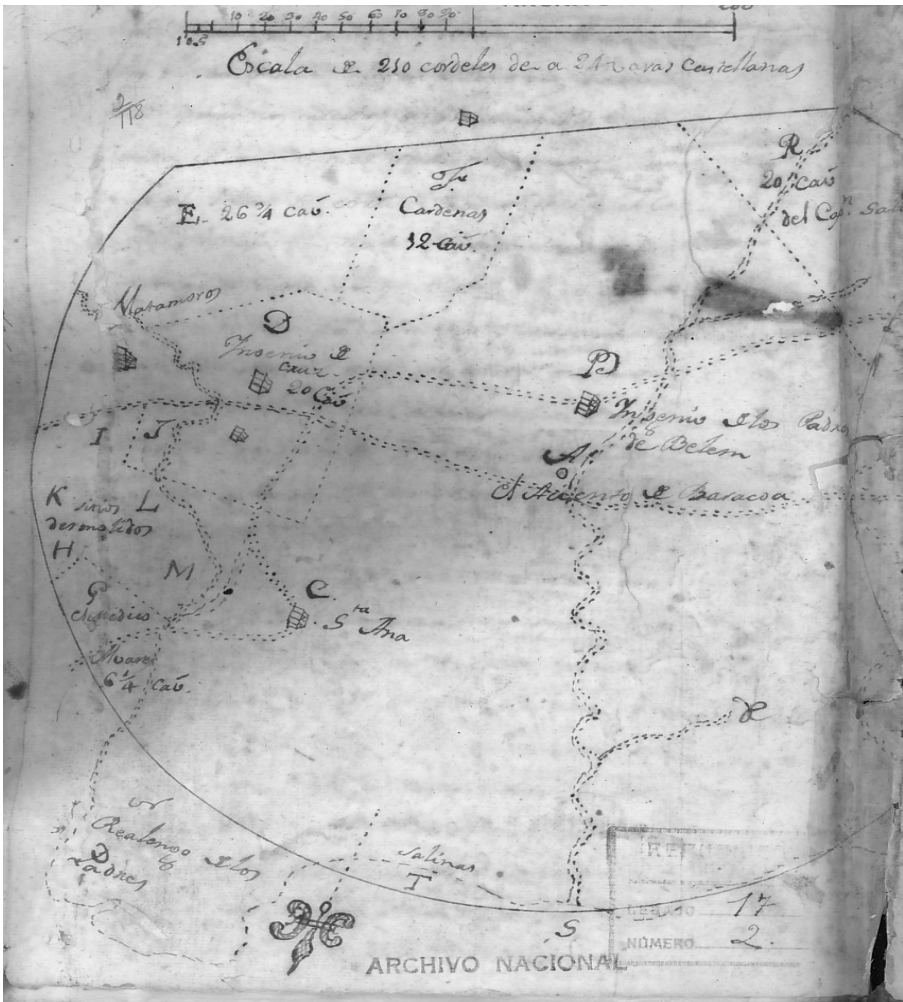 10 20 30 40 50 60 70 80 90
Escala de 210 cordeles de a 24 varas Castellanas
2/118
R
20 Cav̄
del Capⁿ
E. 26 3/4 cav̄.
Cardenas
12 Cav̄.
Matamoros
D
Ingenio de
20 Cav̄
B
Ingenio de los Padres
de Belem
A
el Asiento de Baracoa
I J
K sitios L
desmolidos
H
M
G
C.
Sta Ana
Alvares
6 1/4 Cav̄.
Realengo de los
Padres
Salinas
T
S
17
NÚMERO 2.
ARCHIVO NACIONAL